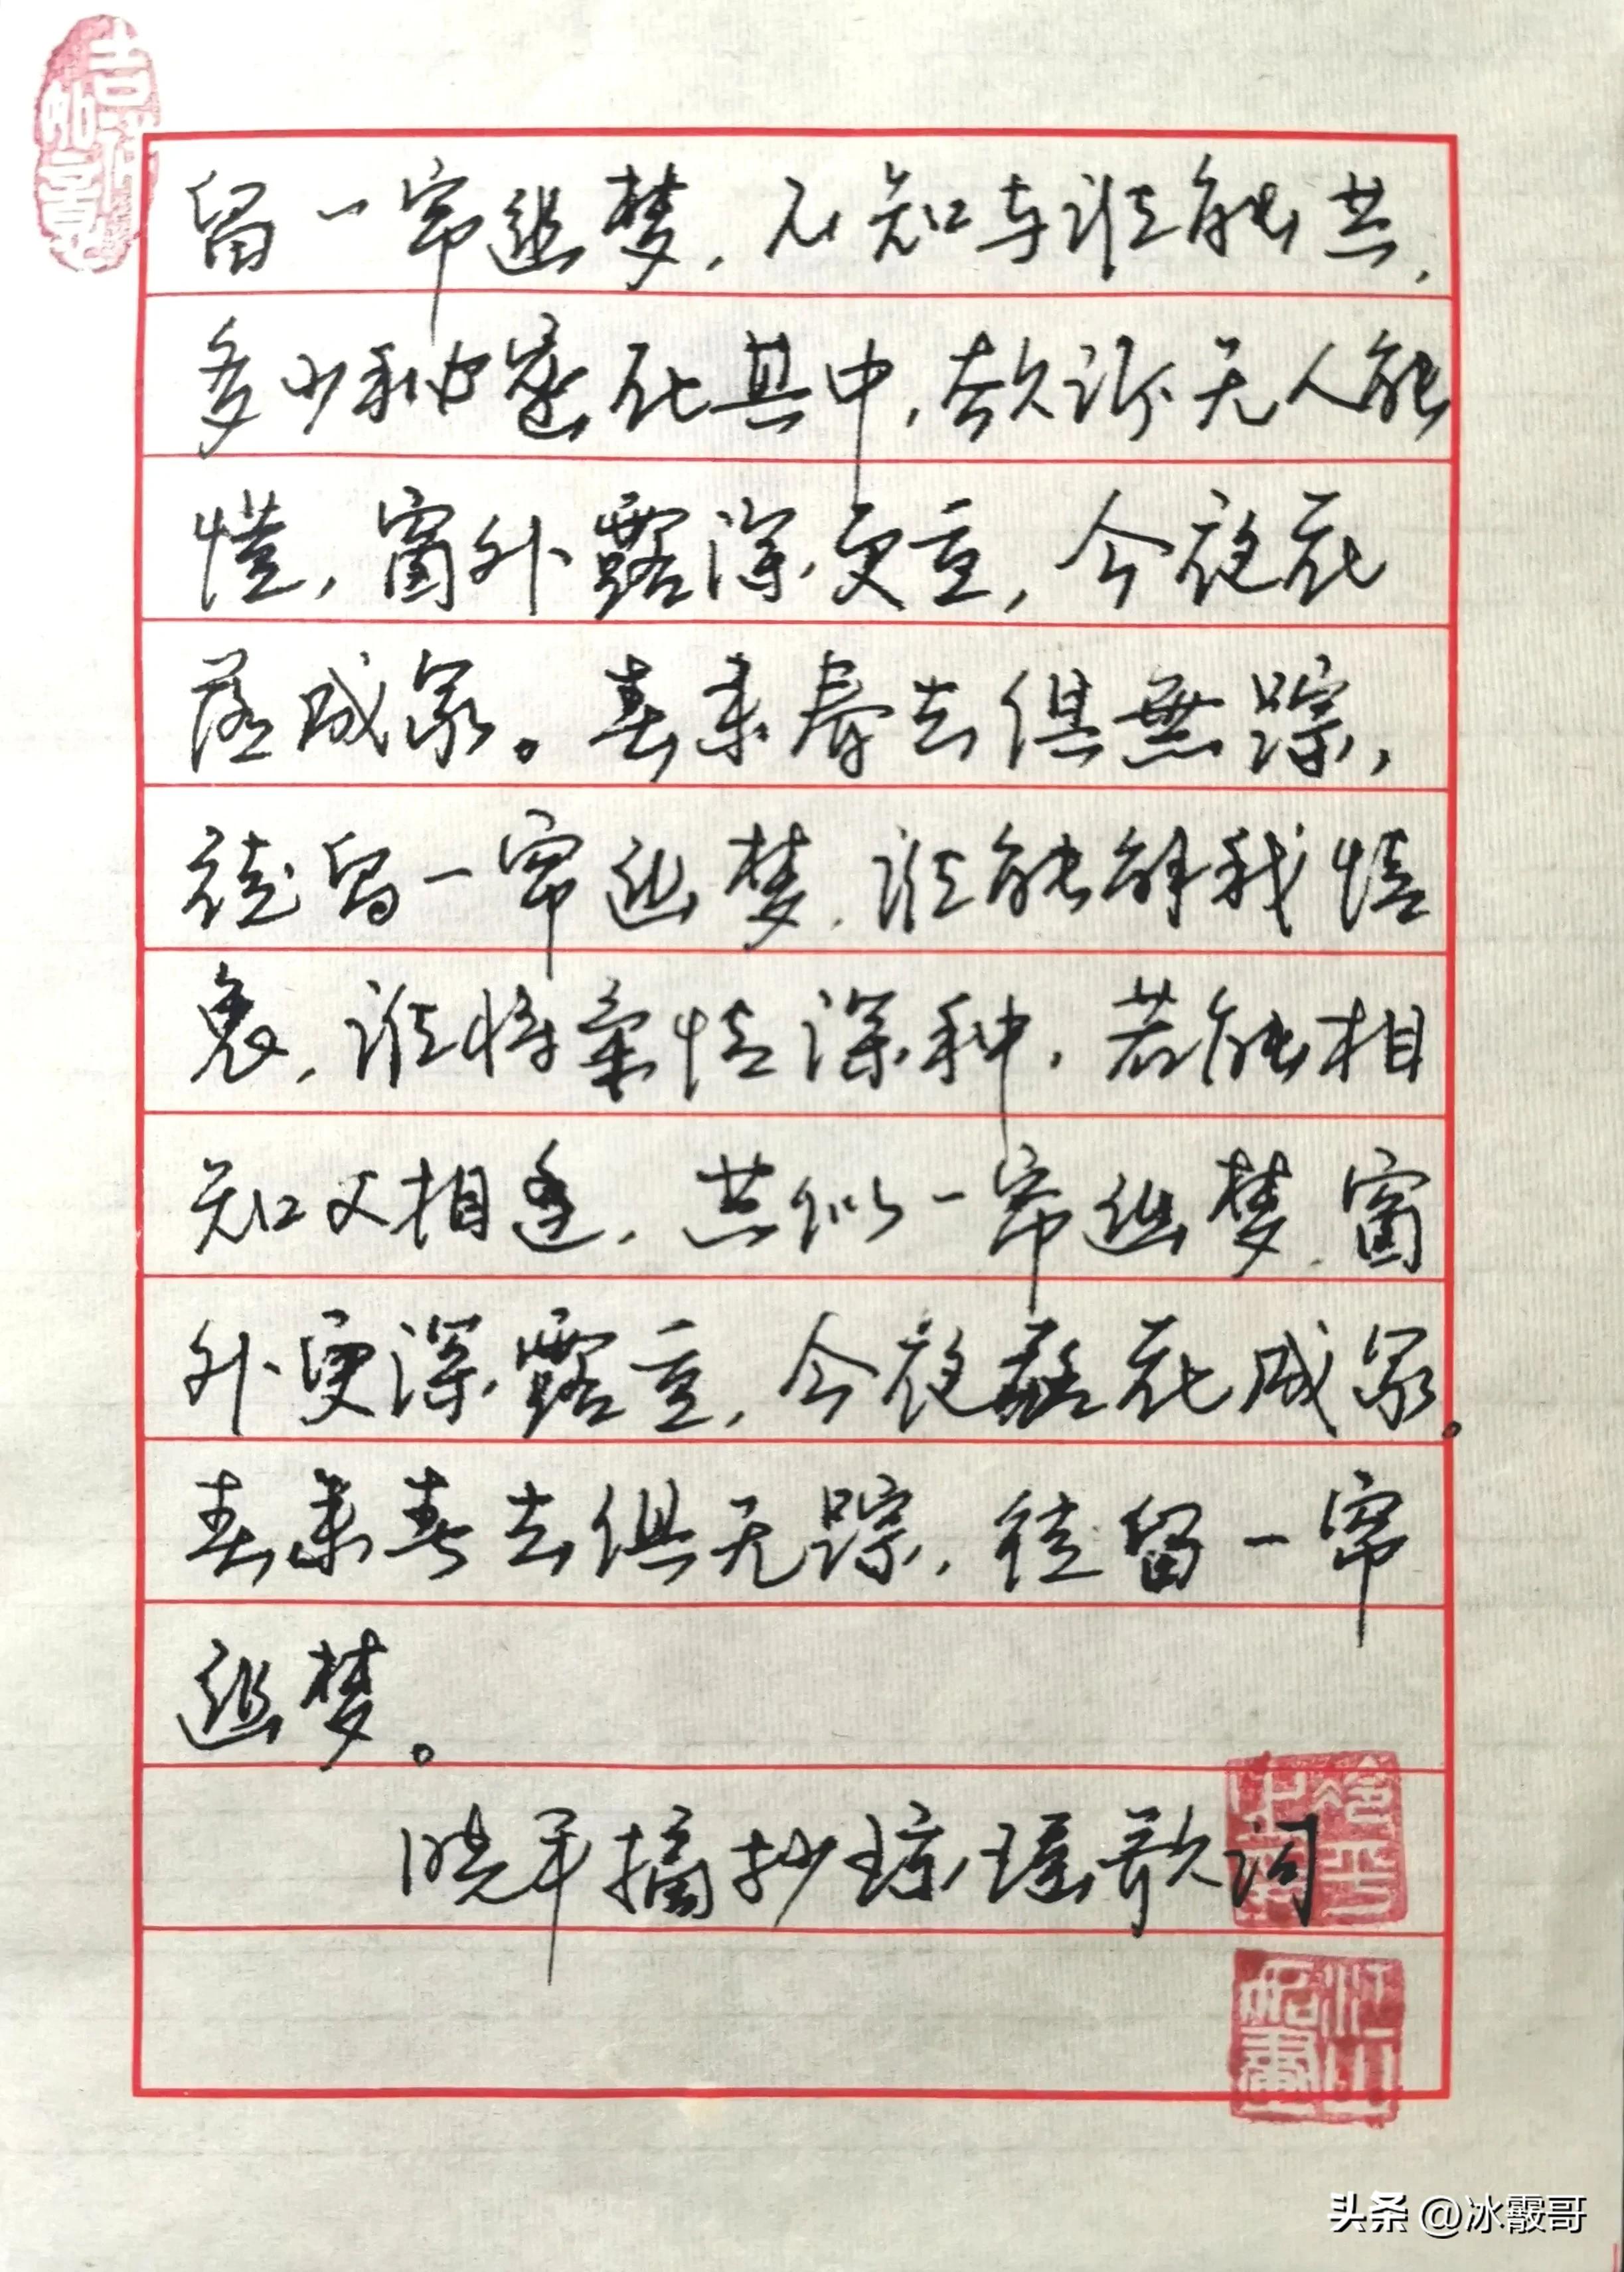 吉祥如意
留一帘幽梦,不知与谁能共,
多少秘密在其中,欲诉无人能
懂,窗外露深更重,今夜花
落成冢。春来春去俱無踪,
徒留一帘幽梦,谁能解我情
衷,谁将柔情深种,若能相
知又相逢,共似一帘幽梦,窗
外更深露重,今夜落花成冢。
春来春去俱无踪,徒留一帘
幽梦。
晓平摘抄琼瑶歌词
江山如画
头条 @冰霰哥